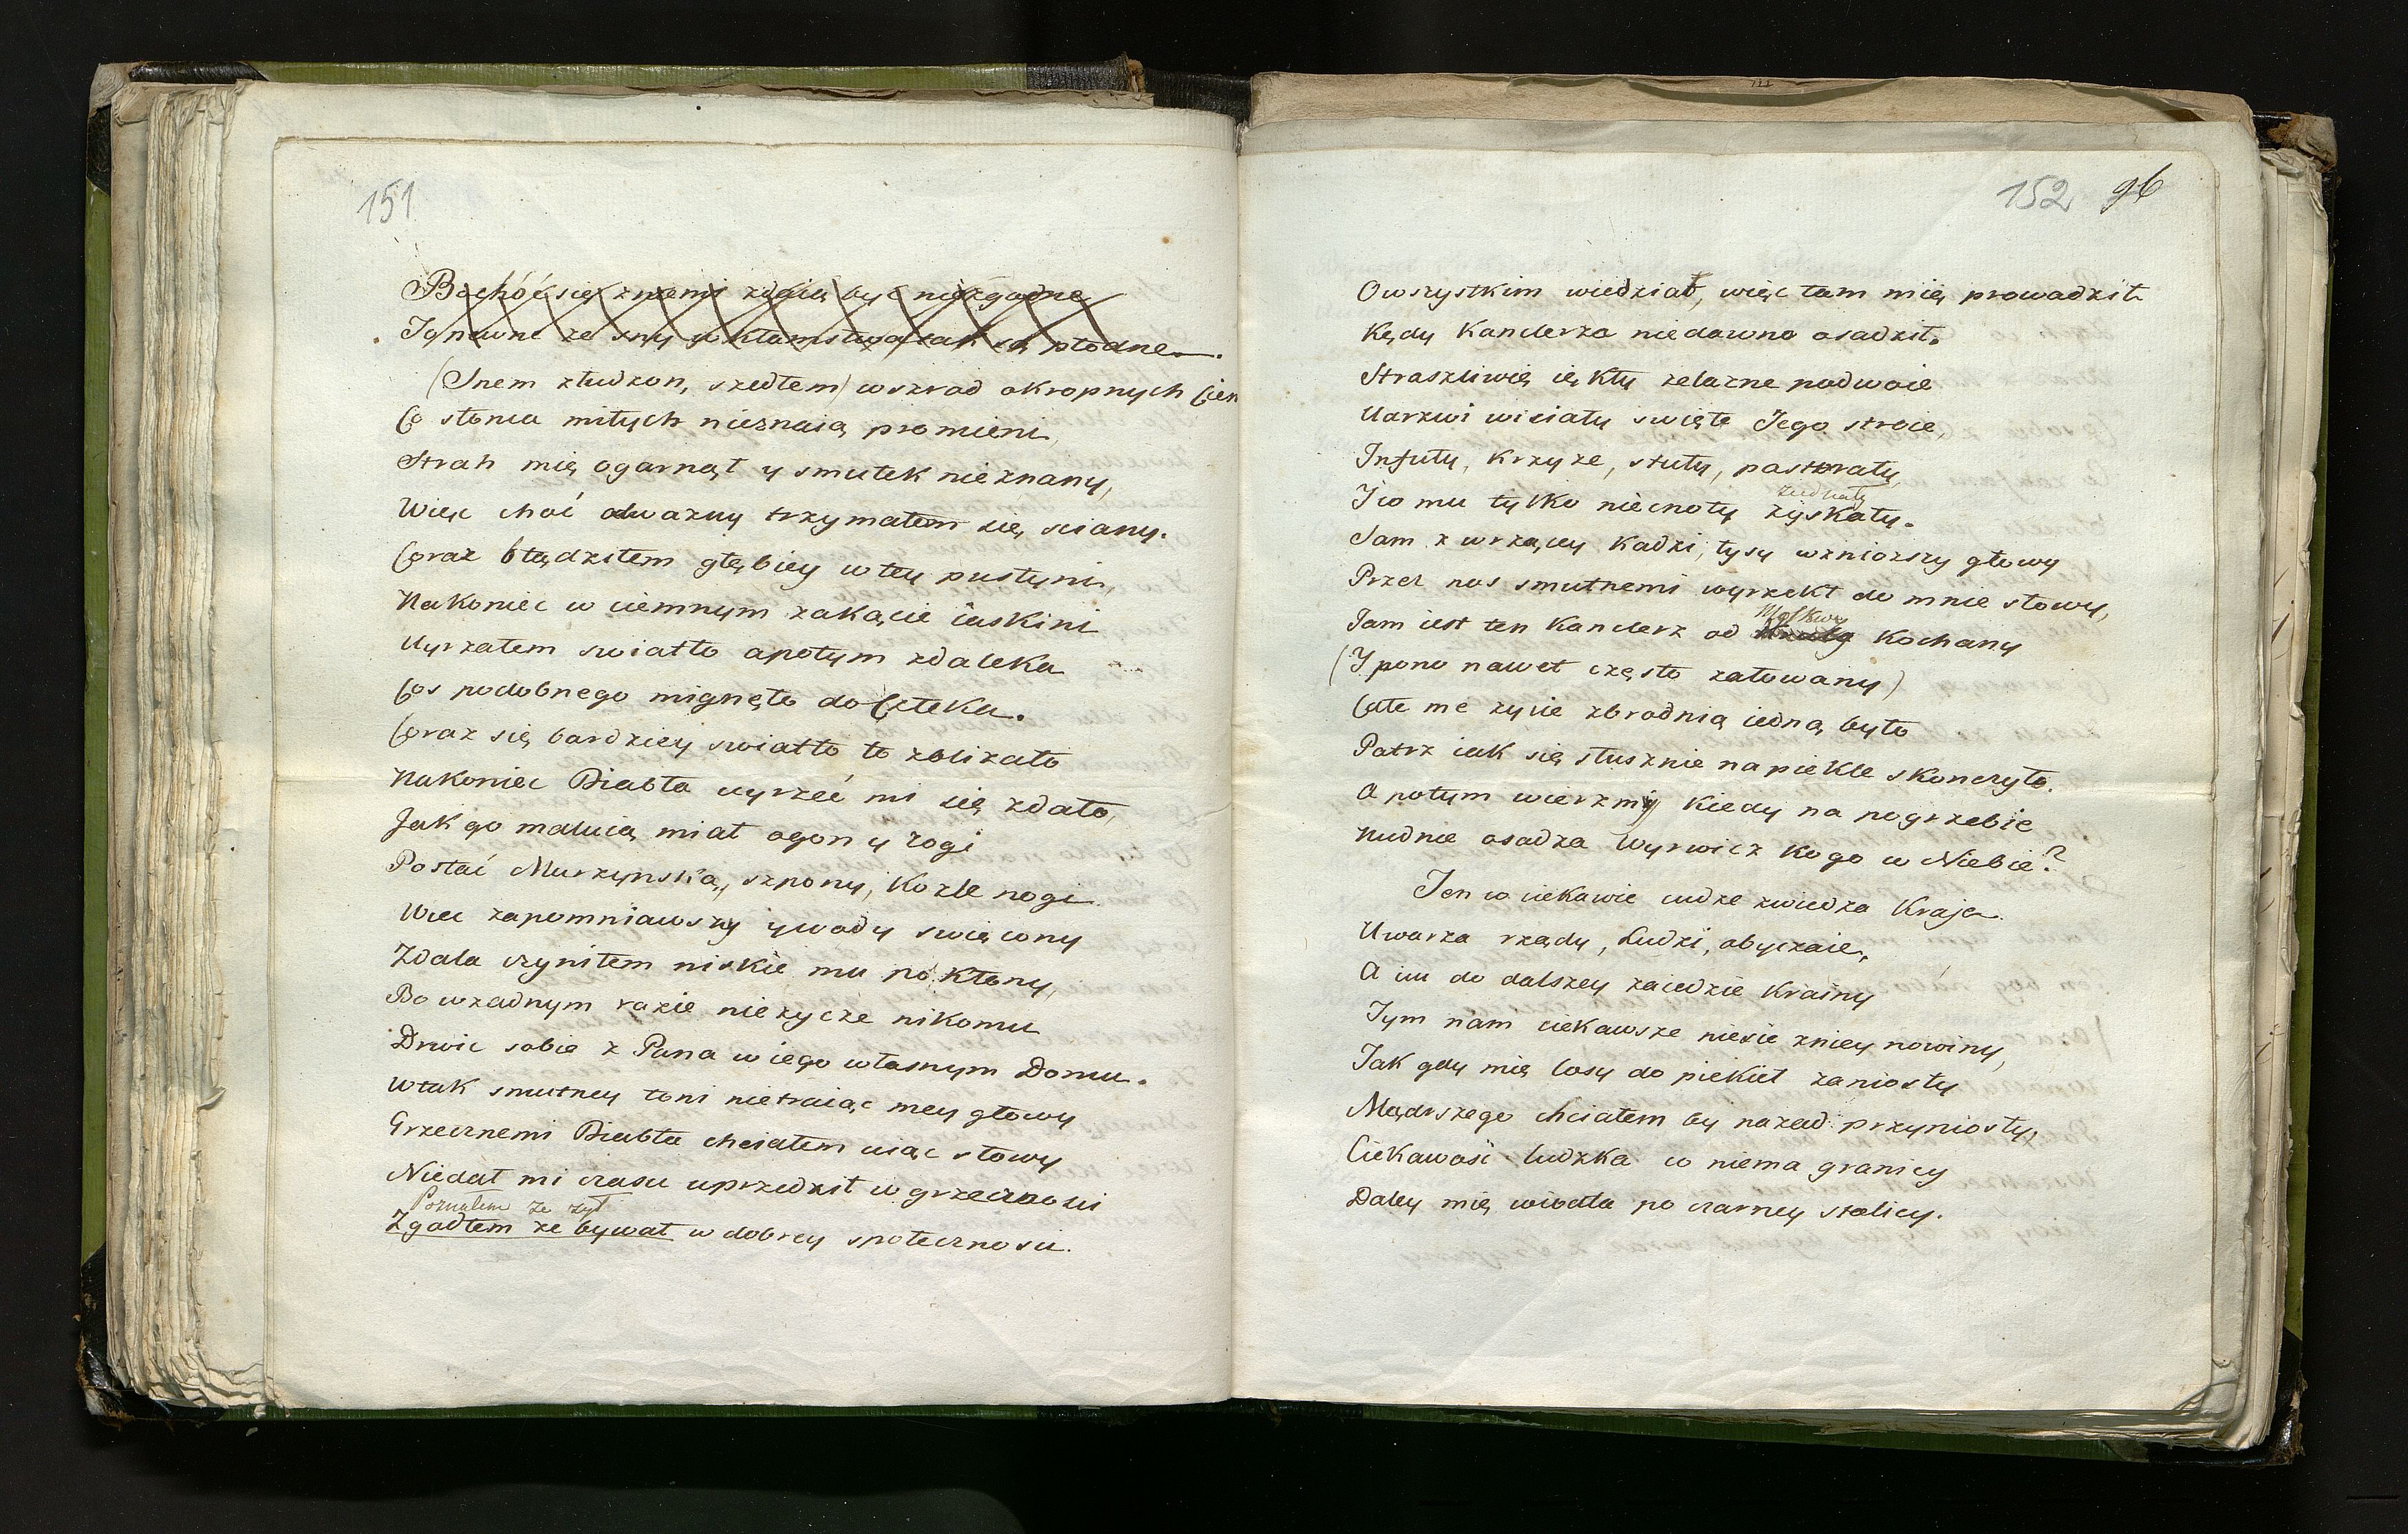 151
Bo chóć się z niemi zdaią być niezgodne
I pewne że sny w kłamstwa tak są płodne.
(Snem złudzon, szedłem) wszrod okropnych Cien
Co słonca miłych nieznaią promieni,
Strah mię ogarnął y smutek nieznany,
Więc choć odwazny trzymałem się sciany.
Coraz błądziłem głębiey w tey pustyni,
Nakoniec w ciemnym zakącie iaskini
Uyrzałem swiatło a potym zdaleka
Cos podobnego mignęło do Człeka.
Coraz się bardziey swiatło to zblizało
Nakoniec Diabła uyrzeć mi się zdało,
Jak go maluią miał ogon y rogi
Postać Murzynską, szpony, Kozle nogi.
Wiec zapomniawszy y wody swięcony
Zdala czyniłem niskie mu pokłony,
Bo w zadnym razie nie zycze nikomu
Drwic sobie z Pana w iego własnym Domu.
W tak smutney toni nietraiąc mey głowy
Grzecznemi Diabła chciałem uiąc słowy
Niedał mi czasu uprzedził w grzecznosci
Poznałem ze zył
Zgadłem ze bywał w dobrey społecznosci.
152 96
O wszystkim wiedział, więc tam mię prowadził
Kędy Kanclerza niedawno osadził.
Straszliwie ięкły zelazne podwoie
U drzwi wisiały swięte Jego stroie,
Infuły, krzyze, stuły, pastorały,
ziednały
I co mu tylko niecnoty zyskały.
Sam z wrzącey Kadzi, łysy wzniozszy głowy
Przez nos smutnemi wyrzekł do mnie słowy,
Moskwy
Jam iest ten Kanclerz od Kochany
(I pono nawet często załowany)
Całe me zycie zbrodnią iedną było
Patrz iak się słusznie na piekle skonczyło.
A potym wierzmy Kiedy na pogrzebie
Nudnie osadza Wyrwicz kogo w Niebie?
Ten co ciekawie cudze zwiedza Kraje.
Uwarza rządy, Ludzi, obyczaie,
A im do dalszey zaiedzie Krainy
Tym nam ciekawsze niesie zniey nowiny,
Tak gdy mię losy do piekieł zaniosły
Mądrszego chciałem by nazad przyniosły,
Ciekawość ludzka co niema granicy
Daley mię wiodła po czarney stolicy.